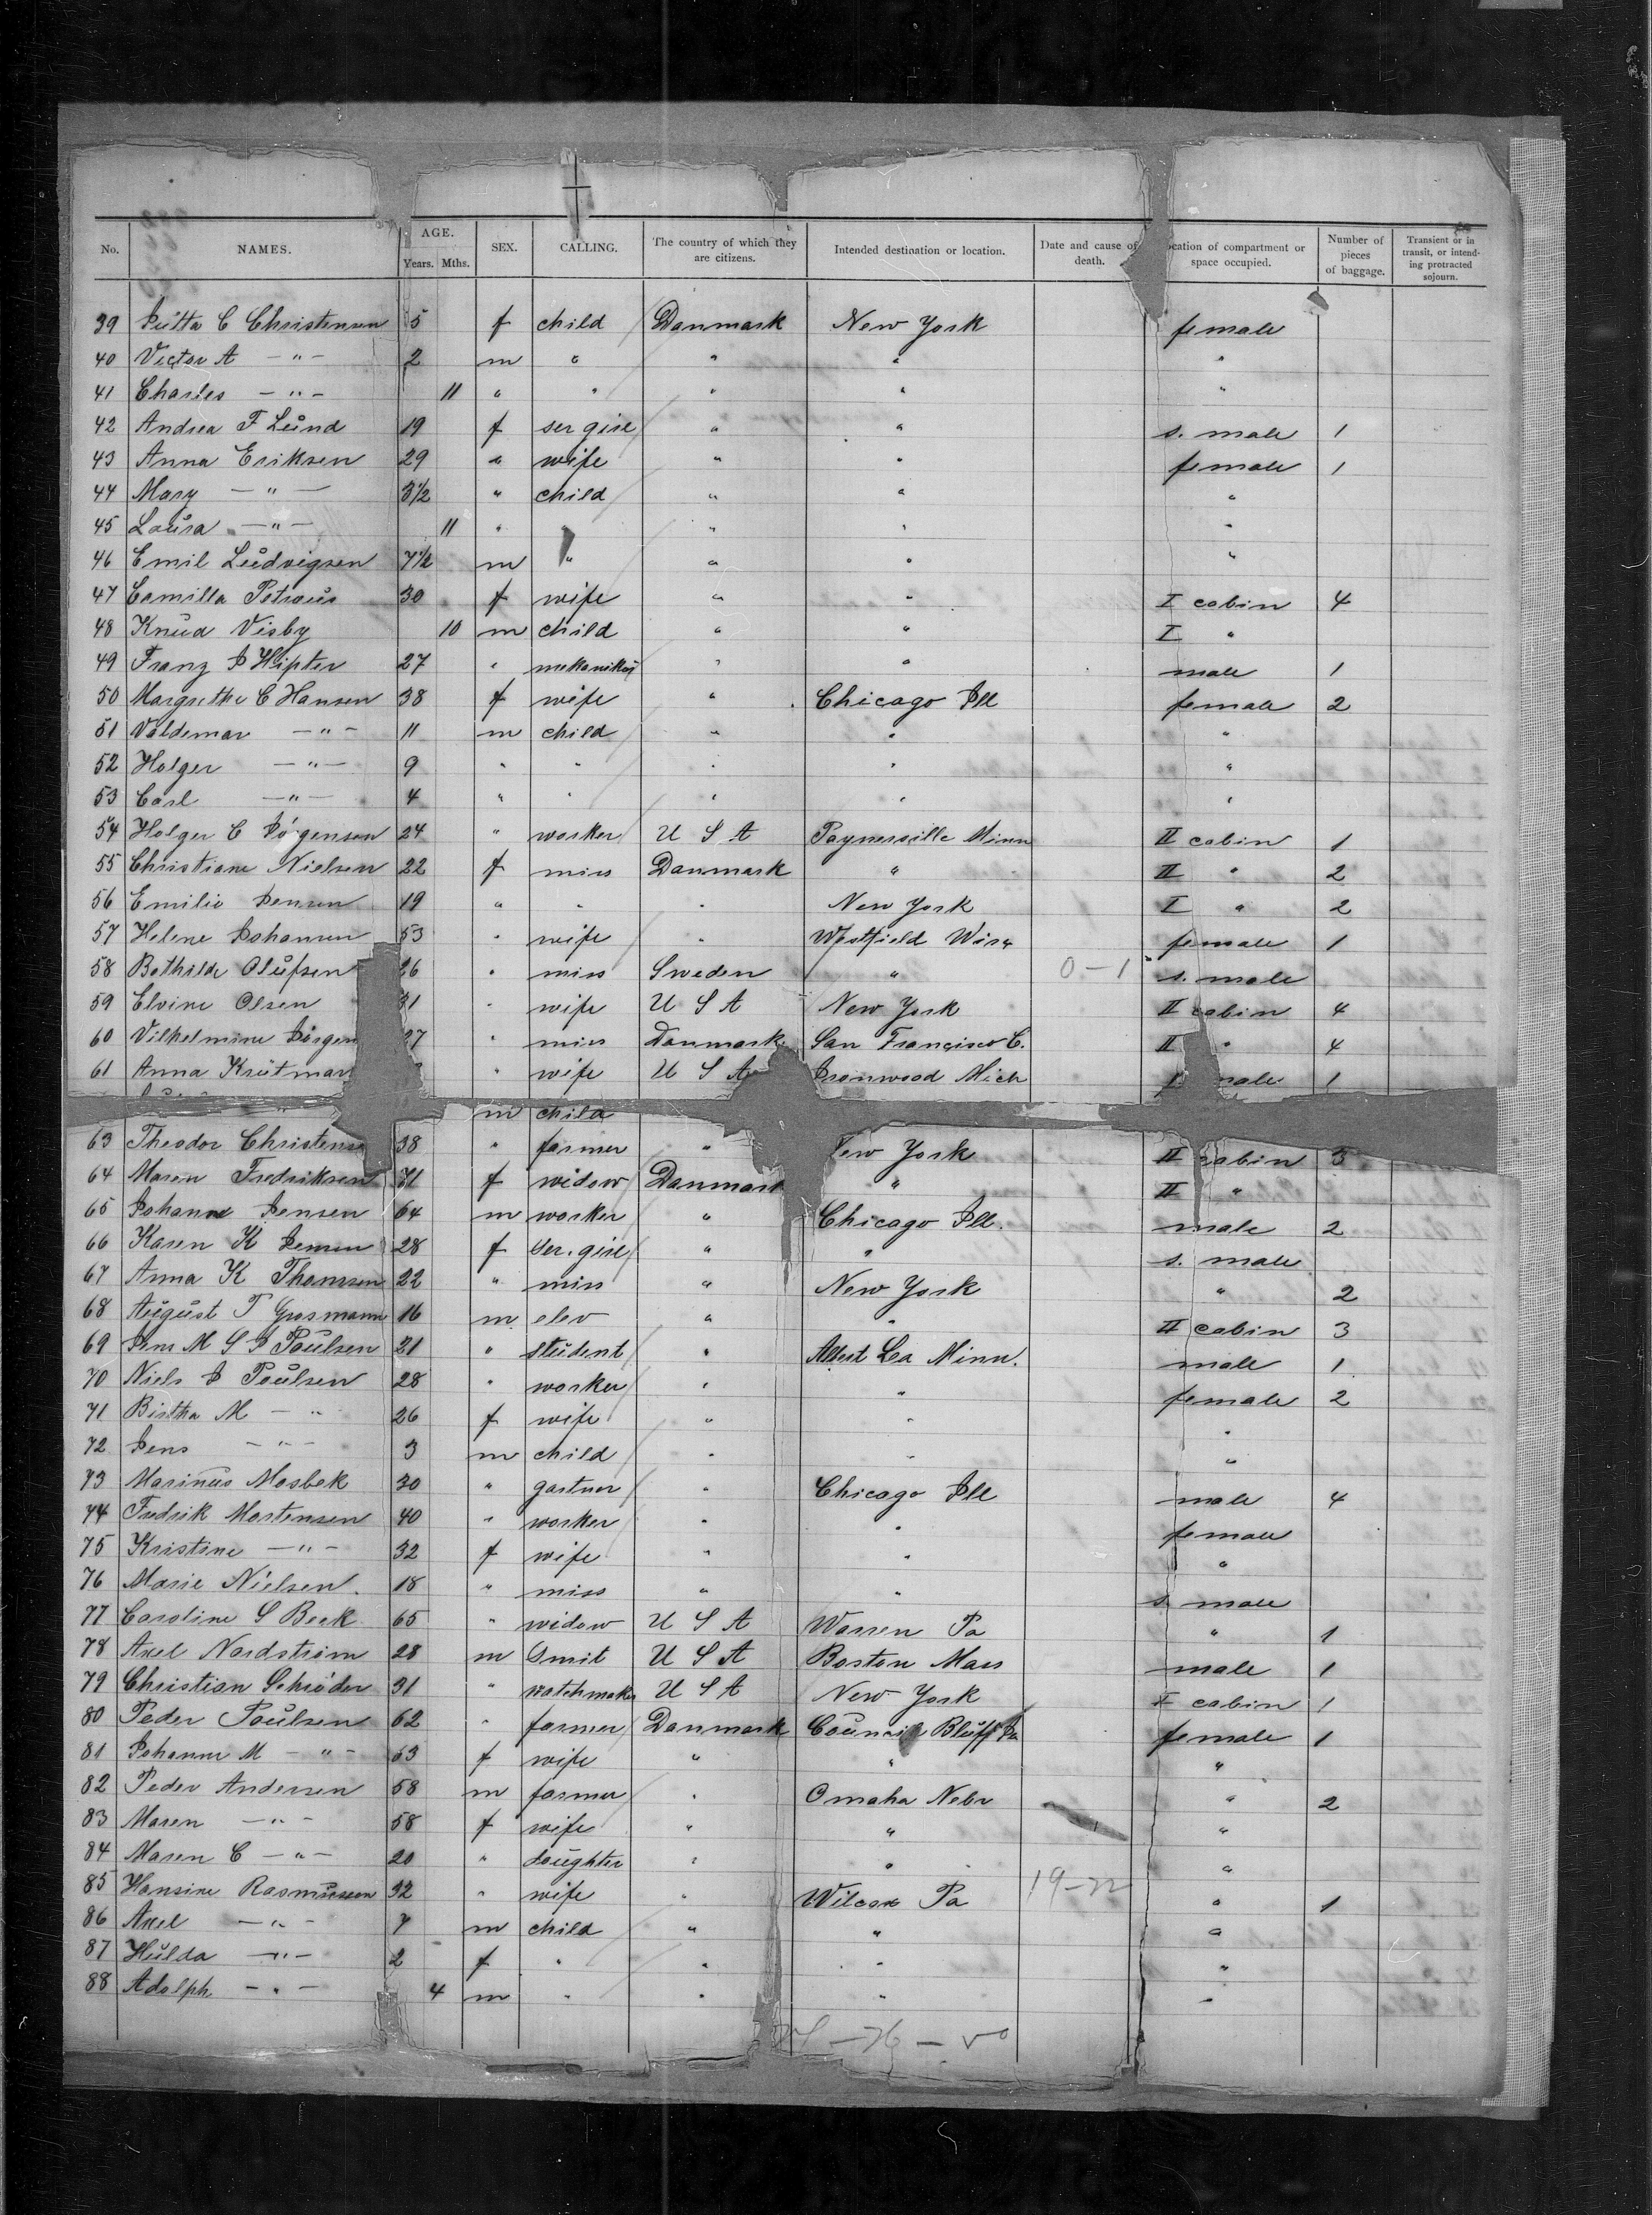 No. NAMES. AGE. Years. Mths. SEX. CALLING. The country of which they are citizens. Intended destination or location. Date and cause of death. ocation of compartment or space occupied. Number of pieces of baggage. Transient or in transit, or intending protracted sojourn.
39 Jutta C Christensen 5 f child Danmark New York female
40 Victor A — " — 2 m " " " "
41 Charles — " — 11 " " " " "
42 Andrea F Lund 19 f ser girl " " s. male 1
43 Anna Eriksen 29 " wife " " female 1
44 Mary — " — 3 1/2 " child " " "
45 Laura — " — 11 " " " " "
46 Emil Ludvigsen 7 1/2 m " " " "
47 Camilla Petraus 30 f wife " " I cabin 4
48 Knud Visby 10 m child " " I "
49 Franz J Hipter 27 " mekaniker " " male 1
50 Margrethe C Hansen 38 f wife " Chicago Ill female 2
51 Valdemar — " — 11 m child " " "
52 Holger — " — 9 " " " " "
53 Carl — " — 4 " " " " "
54 Holger C Jörgensen 24 " worker U S A Paynesville Minn II cabin 1
55 Christiane Nielsen 22 f miss Danmark " II " 2
56 Emilie Jensen 19 " " " New York I " 2
57 Helene Johansen 53 " wife " Westfield Wis female 1
58 Bothilde Olufsen 26 " miss Sweden " 0-1 s. male
59 Elvine Olsen 31 " wife U S A New York II cabin 4
60 Vilhelmine Jörgen 27 " miss Danmark San Francisco C. II " 4
61 Anna Krutmar " wife U S A Ironwood Mich male 1
" m child
63 Theodor Christense 38 " farmer " ew York II cabin 3
64 Maren Fredriksen 71 f widow Danmark " II "
65 Johann Jensen 64 m worker " Chicago Ill. male 2
66 Karen K Jensen 28 f ser. girl " " s. male
67 Anna K Thomsen 22 " miss " New York " 2
68 August P Grosmann 16 m elev " " II cabin 3
69 Jens M S J Poulsen 21 " student " Albert Lea Minn. male 1
70 Niels J Poulsen 28 " worker " " female 2
71 Birtha M — " 26 f wife " " "
72 Jens — " — 3 m child " " "
73 Marinus Mosbek 30 " gartner " Chicago Ill male 4
74 Fredrik Mortensen 40 " worker " " female
75 Kristine — " — 32 f wife " " "
76 Marie Nielsen. 18 " miss " " s male
77 Caroline S Beck 65 " widow U S A Warren Pa " 1
78 Axel Nordström 28 m Smit U S A Boston Mass male 1
79 Christian Schröder 31 " watchmaker U S A New York I cabin 1
80 Peder Poulsen 62 " farmer Danmark Council Bluff Ia female 1
81 Johanne M — " — 63 f wife " " "
82 Peder Andersen 58 m farmer " Omaha Nebr " 2
83 Maren — " — 58 f wife " " "
84 Maren C — " — 20 " daughter " " "
85 Hansine Rasmussen 32 " wife " Wilcox Pa 19-22 " 1
86 Axel — " — 7 m child " " "
87 Hulda — " — 2 f " " " "
88 Adolph — " — 4 m " " " "